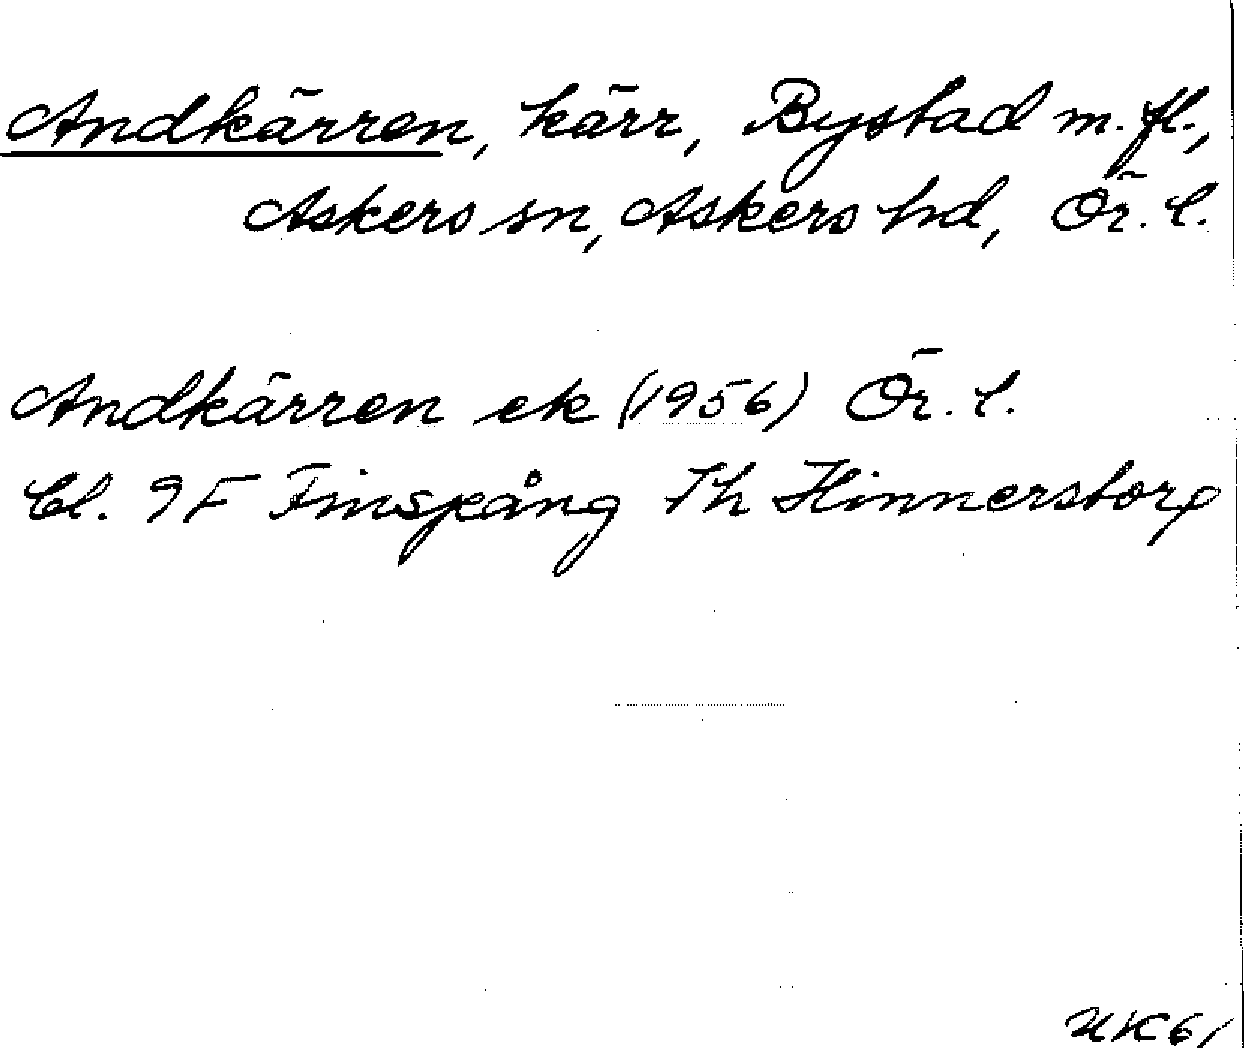 Andkärren, kärr, Bystad m. fl.,
Askers sn, Askers hd, Ör. l.
Andkärren ek (1956) Ör. l.
bl. 9F Finspång Th Hinnerstorp
UK61